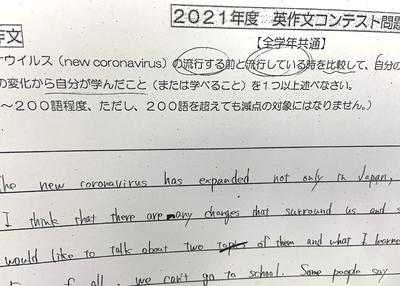 2021年度 英作文コンテスト問題
作文
【全学年共通】
ウイルス（new coronavirus）の流行する前と流行している時を比較して、自分の
の変化から自分が学んだこと（または学べること）を1つ以上述べなさい。
～200語程度、ただし、200語を超えても減点の対象にはなりません。）
The new coronavirus has expanded not only in Japan,
I think that there are many changes that surround us and
would like to talk about two topics of them and what I learne
of all, we can't go to school. Some people say